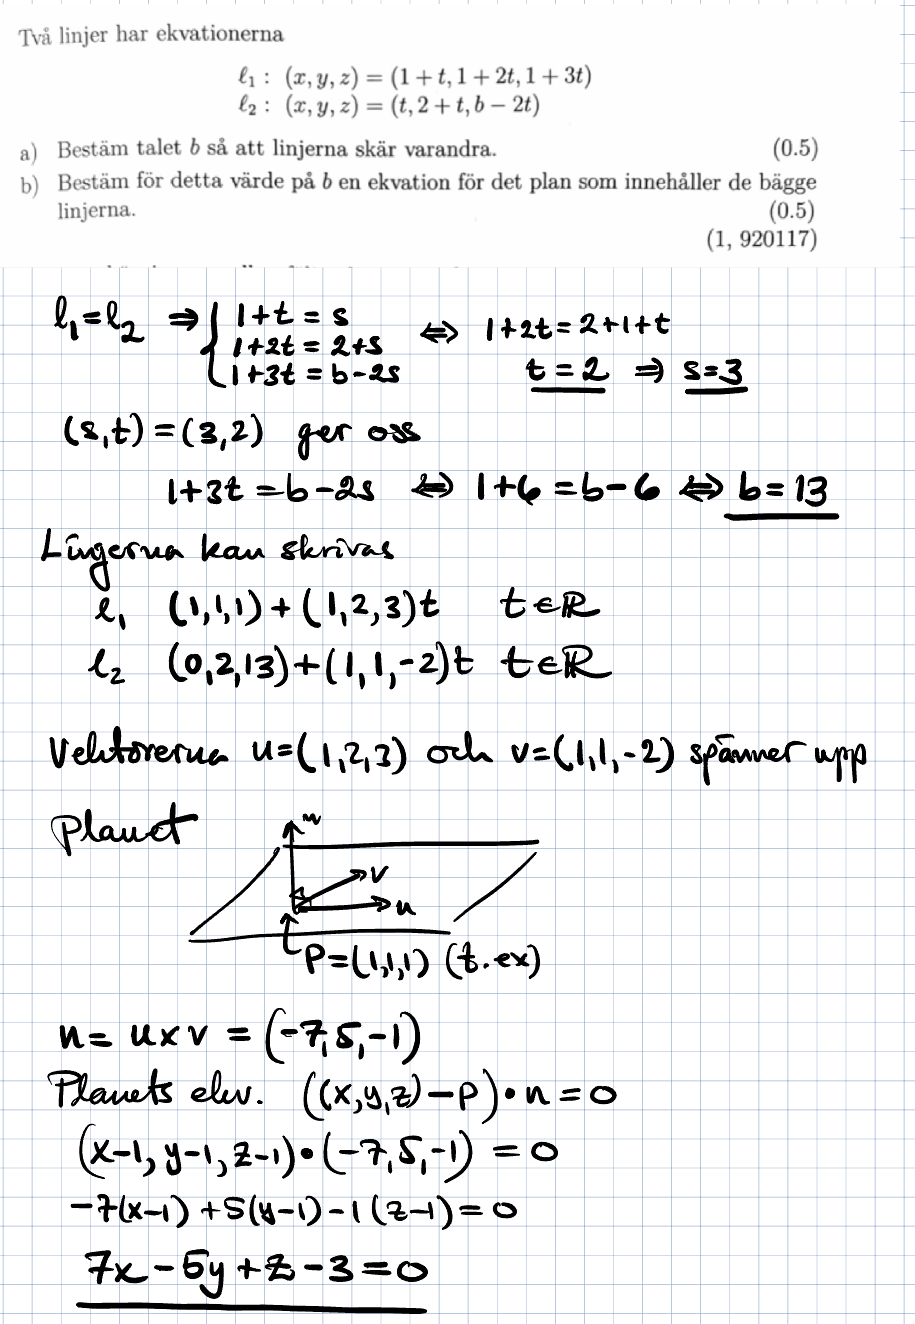 Två linjer har ekvationerna
ℓ₁ : (x, y, z) = (1 + t, 1 + 2t, 1 + 3t)
ℓ₂ : (x, y, z) = (t, 2 + t, b − 2t)
a) Bestäm talet b så att linjerna skär varandra. (0.5)
b) Bestäm för detta värde på b en ekvation för det plan som innehåller de bägge
linjerna. (0.5)
(1, 920117)
ℓ₁=ℓ₂ ⇒ { 1+t = s
1+2t = 2+s ⇔ 1+2t = 2+1+t
1+3t = b-2s t = 2 ⇒ s=3
(s,t) = (3,2) ger oss
1+3t = b-2s ⇔ 1+6 = b-6 ⇔ b = 13
Linjerna kan skrivas
ℓ₁ (1,1,1) + (1,2,3)t t∈ℝ
ℓ₂ (0,2,13)+(1,1,-2)t t∈ℝ
Vektorerna u=(1,2,3) och v=(1,1,-2) spänner upp
planet
n
v
u
P=(1,1,1) (t.ex)
n = u×v = (-7,5,-1)
Planets ekv. ((x,y,z)-P)•n = 0
(x-1, y-1, z-1)•(-7,5,-1) = 0
-7(x-1) +5(y-1) -1(z-1) = 0
7x - 5y + z - 3 = 0